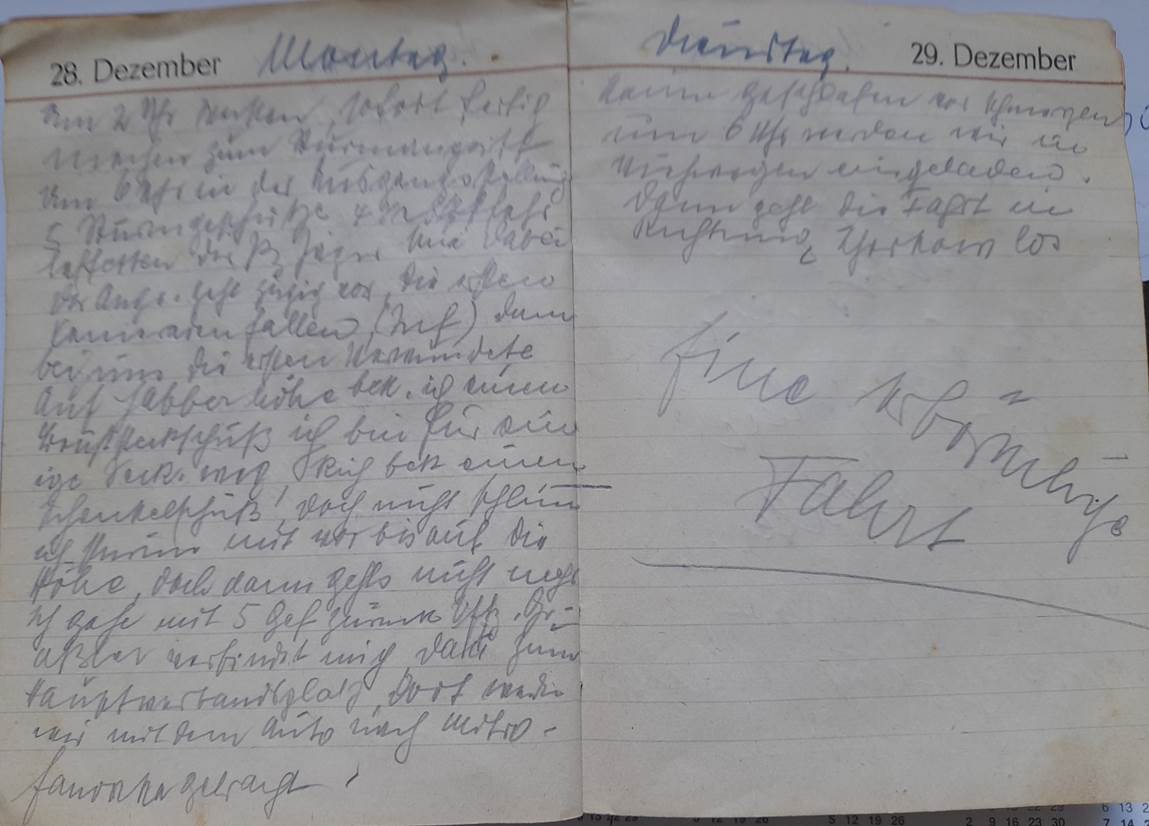 28. Dezember Montag.
Um 2 Uhr wecken, sofort fertig
machen zum Sturmangriff
Um 6 Uhr in der Ausgangsstellung
5 Sturmgeschütze 4 Selbstfahr
laffetten der Pz Jäger sind dabei
Der Angr. geht zügig vor, die ersten
Kameraden fallen, (Inf) dann
bei uns die ersten Verwundete
Auf halber Höhe bek. ich einen
ich bin für ein
ige Sek. weg, bek einen
Schenkelschuß, doch nicht schlimm
ich stürme mit vor bis auf die
Höhe, doch dann gehts nicht mehr
Ich gehe mit 5 Gef zurück Uffz.
verbindet mich, dann zum
Hauptverbandsplatz, Dort werden
wir mit dem Auto nach Mitro-
fanowka gebracht.
Dienstag. 29. Dezember
Kaum geschlafen vor Schmerzen,
um 6 Uhr werden wir in
Viehwagen eingeladen.
Dann geht die Fahrt in
Richtung Charkow los
Eine erbärmliche
Fahrt